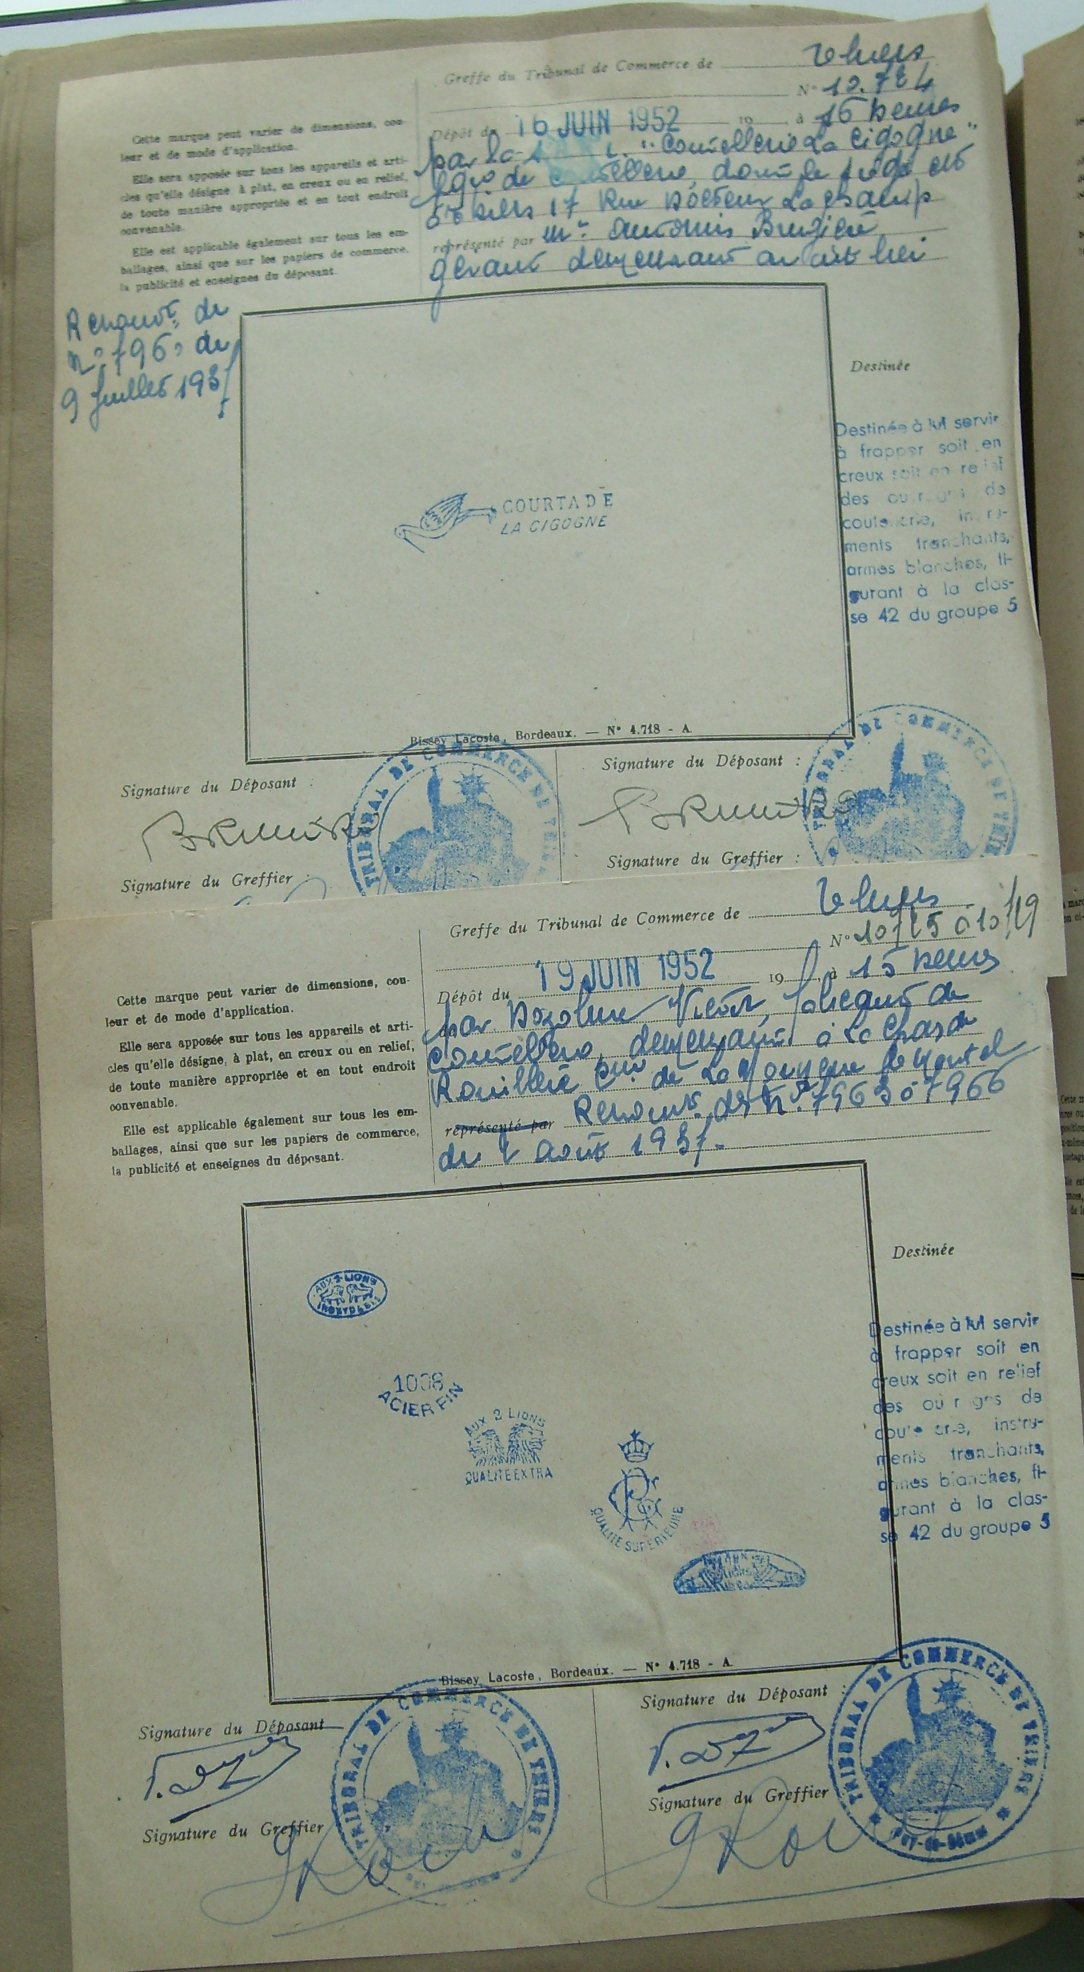 Greffe du Tribunal de Commerce de Thiers
N° 10.724
Dépôt du 16 JUIN 1952 19 à 16 heures
par la "Coutellerie La Cigogne"
de coutellerie, dont le siège est
à Thiers 17 Rue Docteur Lachamp
représenté par Mr. Antonin
gérant demeurant au dit lieu
Cette marque peut varier de dimensions, cou-
leur et de mode d'application.
Elle sera apposée sur tous les appareils et arti-
cles qu'elle désigne, à plat, en creux ou en relief,
de toute manière appropriée et en tout endroit
convenable.
Elle est applicable également sur tous les em-
ballages, ainsi que sur les papiers de commerce,
la publicité et enseignes du déposant.
Renouvt. du
n° 7960 du
9 Juillet 1937
COURTADE
LA CIGOGNE
Destinée
Destinée à lui servir
à frapper soit en
creux soit en relief
des ouvrages de
coutellerie, instru-
ments tranchants,
armes blanches, fi-
gurant à la clas-
se 42 du groupe 5
Bissey Lacoste, Bordeaux. — N° 4.718 - A.
Signature du Déposant :
Signature du Déposant :
TRIBUNAL DE COMMERCE DE THIERS
TRIBUNAL DE COMMERCE DE THIERS
Signature du Greffier :
Signature du Greffier :
Greffe du Tribunal de Commerce de Thiers
N° 10725 à 10729
Dépôt du 19 JUIN 1952 19 à 15 heures
par Victor, fabricant de
coutellerie, demeurant à
Cne de La Monnerie le Montel
représenté par Renouvt. des n°s 7963 à 7966
du 2 Août 1937.
Cette marque peut varier de dimensions, cou-
leur et de mode d'application.
Elle sera apposée sur tous les appareils et arti-
cles qu'elle désigne, à plat, en creux ou en relief,
de toute manière appropriée et en tout endroit
convenable.
Elle est applicable également sur tous les em-
ballages, ainsi que sur les papiers de commerce,
la publicité et enseignes du déposant.
AUX 2 LIONS
INOXYDABLE
1008
ACIER FIN
AUX 2 LIONS
QUALITE EXTRA
QUALITE SUPERIEURE
Destinée
Destinée à lui servir
à frapper soit en
creux soit en relief
des ouvrages de
coutellerie, instru-
ments tranchants,
armes blanches, fi-
gurant à la clas-
se 42 du groupe 5
Bissey Lacoste, Bordeaux. — N° 4.718 - A.
Signature du Déposant
Signature du Déposant :
TRIBUNAL DE COMMERCE DE THIERS
TRIBUNAL DE COMMERCE DE THIERS
PUY-DE-DÔME
Signature du Greffier
Signature du Greffier